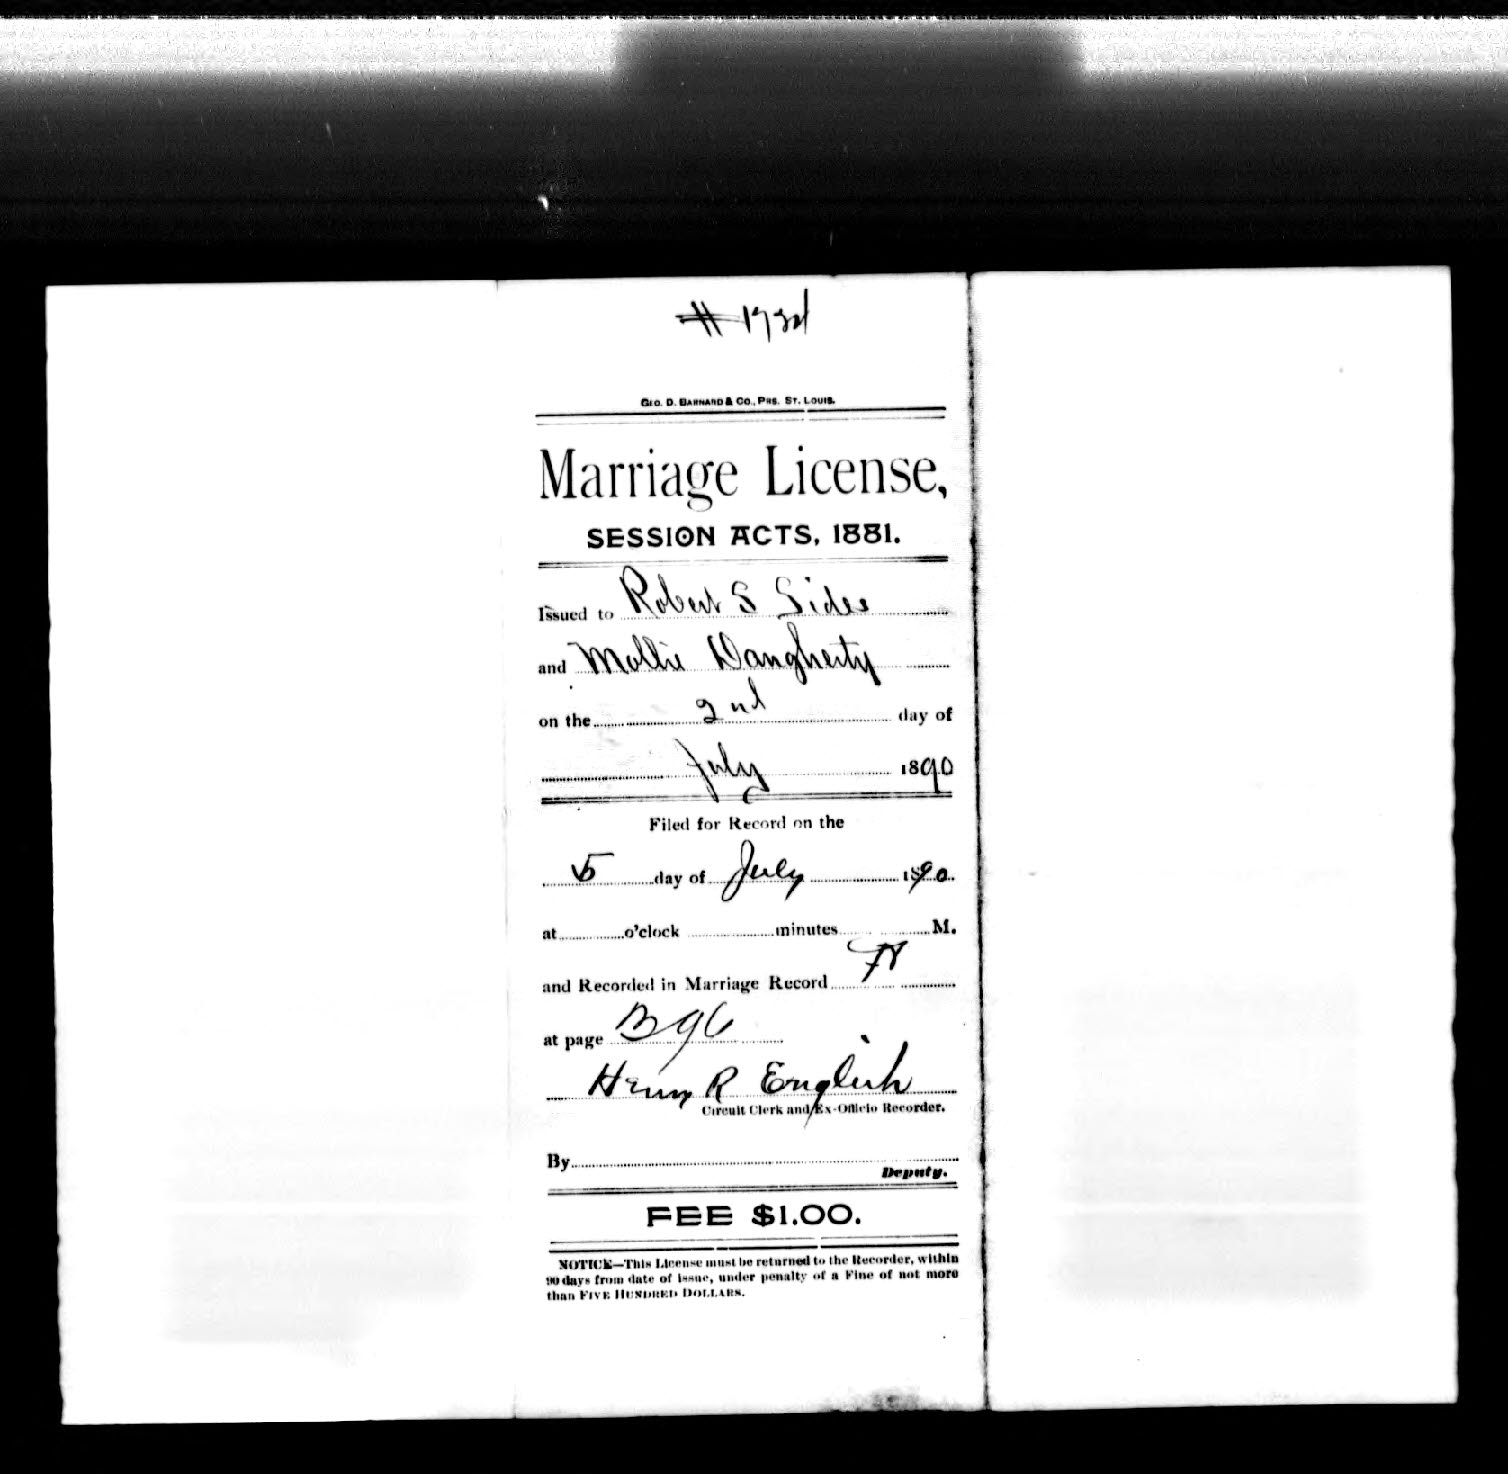 Geo. D. Barnard & Co., Prs. St. Louis.
Marriage License,
SESSION ACTS, 1881.
Issued to Robert S Sides
and Mollie Daugherty
on the 2nd day of
July 1890
Filed for Record on the
5 day of July 1890.
at o'clock minutes M.
and Recorded in Marriage Record
at page
Henry R English
Circuit Clerk and Ex-Officio Recorder.
By
Deputy.
FEE $1.00.
NOTICE—This License must be returned to the Recorder, within
90 days from date of issue, under penalty of a Fine of not more
than Five Hundred Dollars.